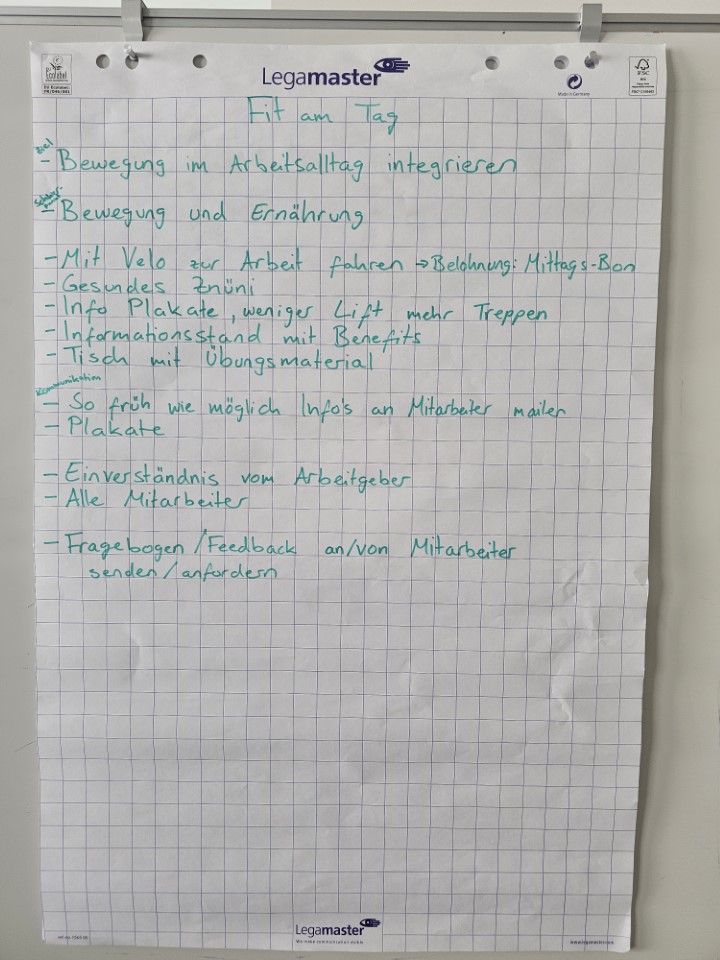 Legamaster
Made in Germany
FSC
Fit am Tag
Ziel
- Bewegung im Arbeitsalltag integrieren
- Bewegung und Ernährung
- Mit Velo zur Arbeit fahren → Belohnung: Mittags-Bon
- Gesundes Znüni
- Info Plakate, weniger Lift mehr Treppen
- Informationsstand mit Benefits
- Tisch mit Übungsmaterial
Kommunikation
- So früh wie möglich Info's an Mitarbeiter mailen
- Plakate
- Einverständnis vom Arbeitgeber
- Alle Mitarbeiter
- Fragebogen / Feedback an/von Mitarbeiter
senden/anfordern
Legamaster
We make communication visible
www.legamaster.com